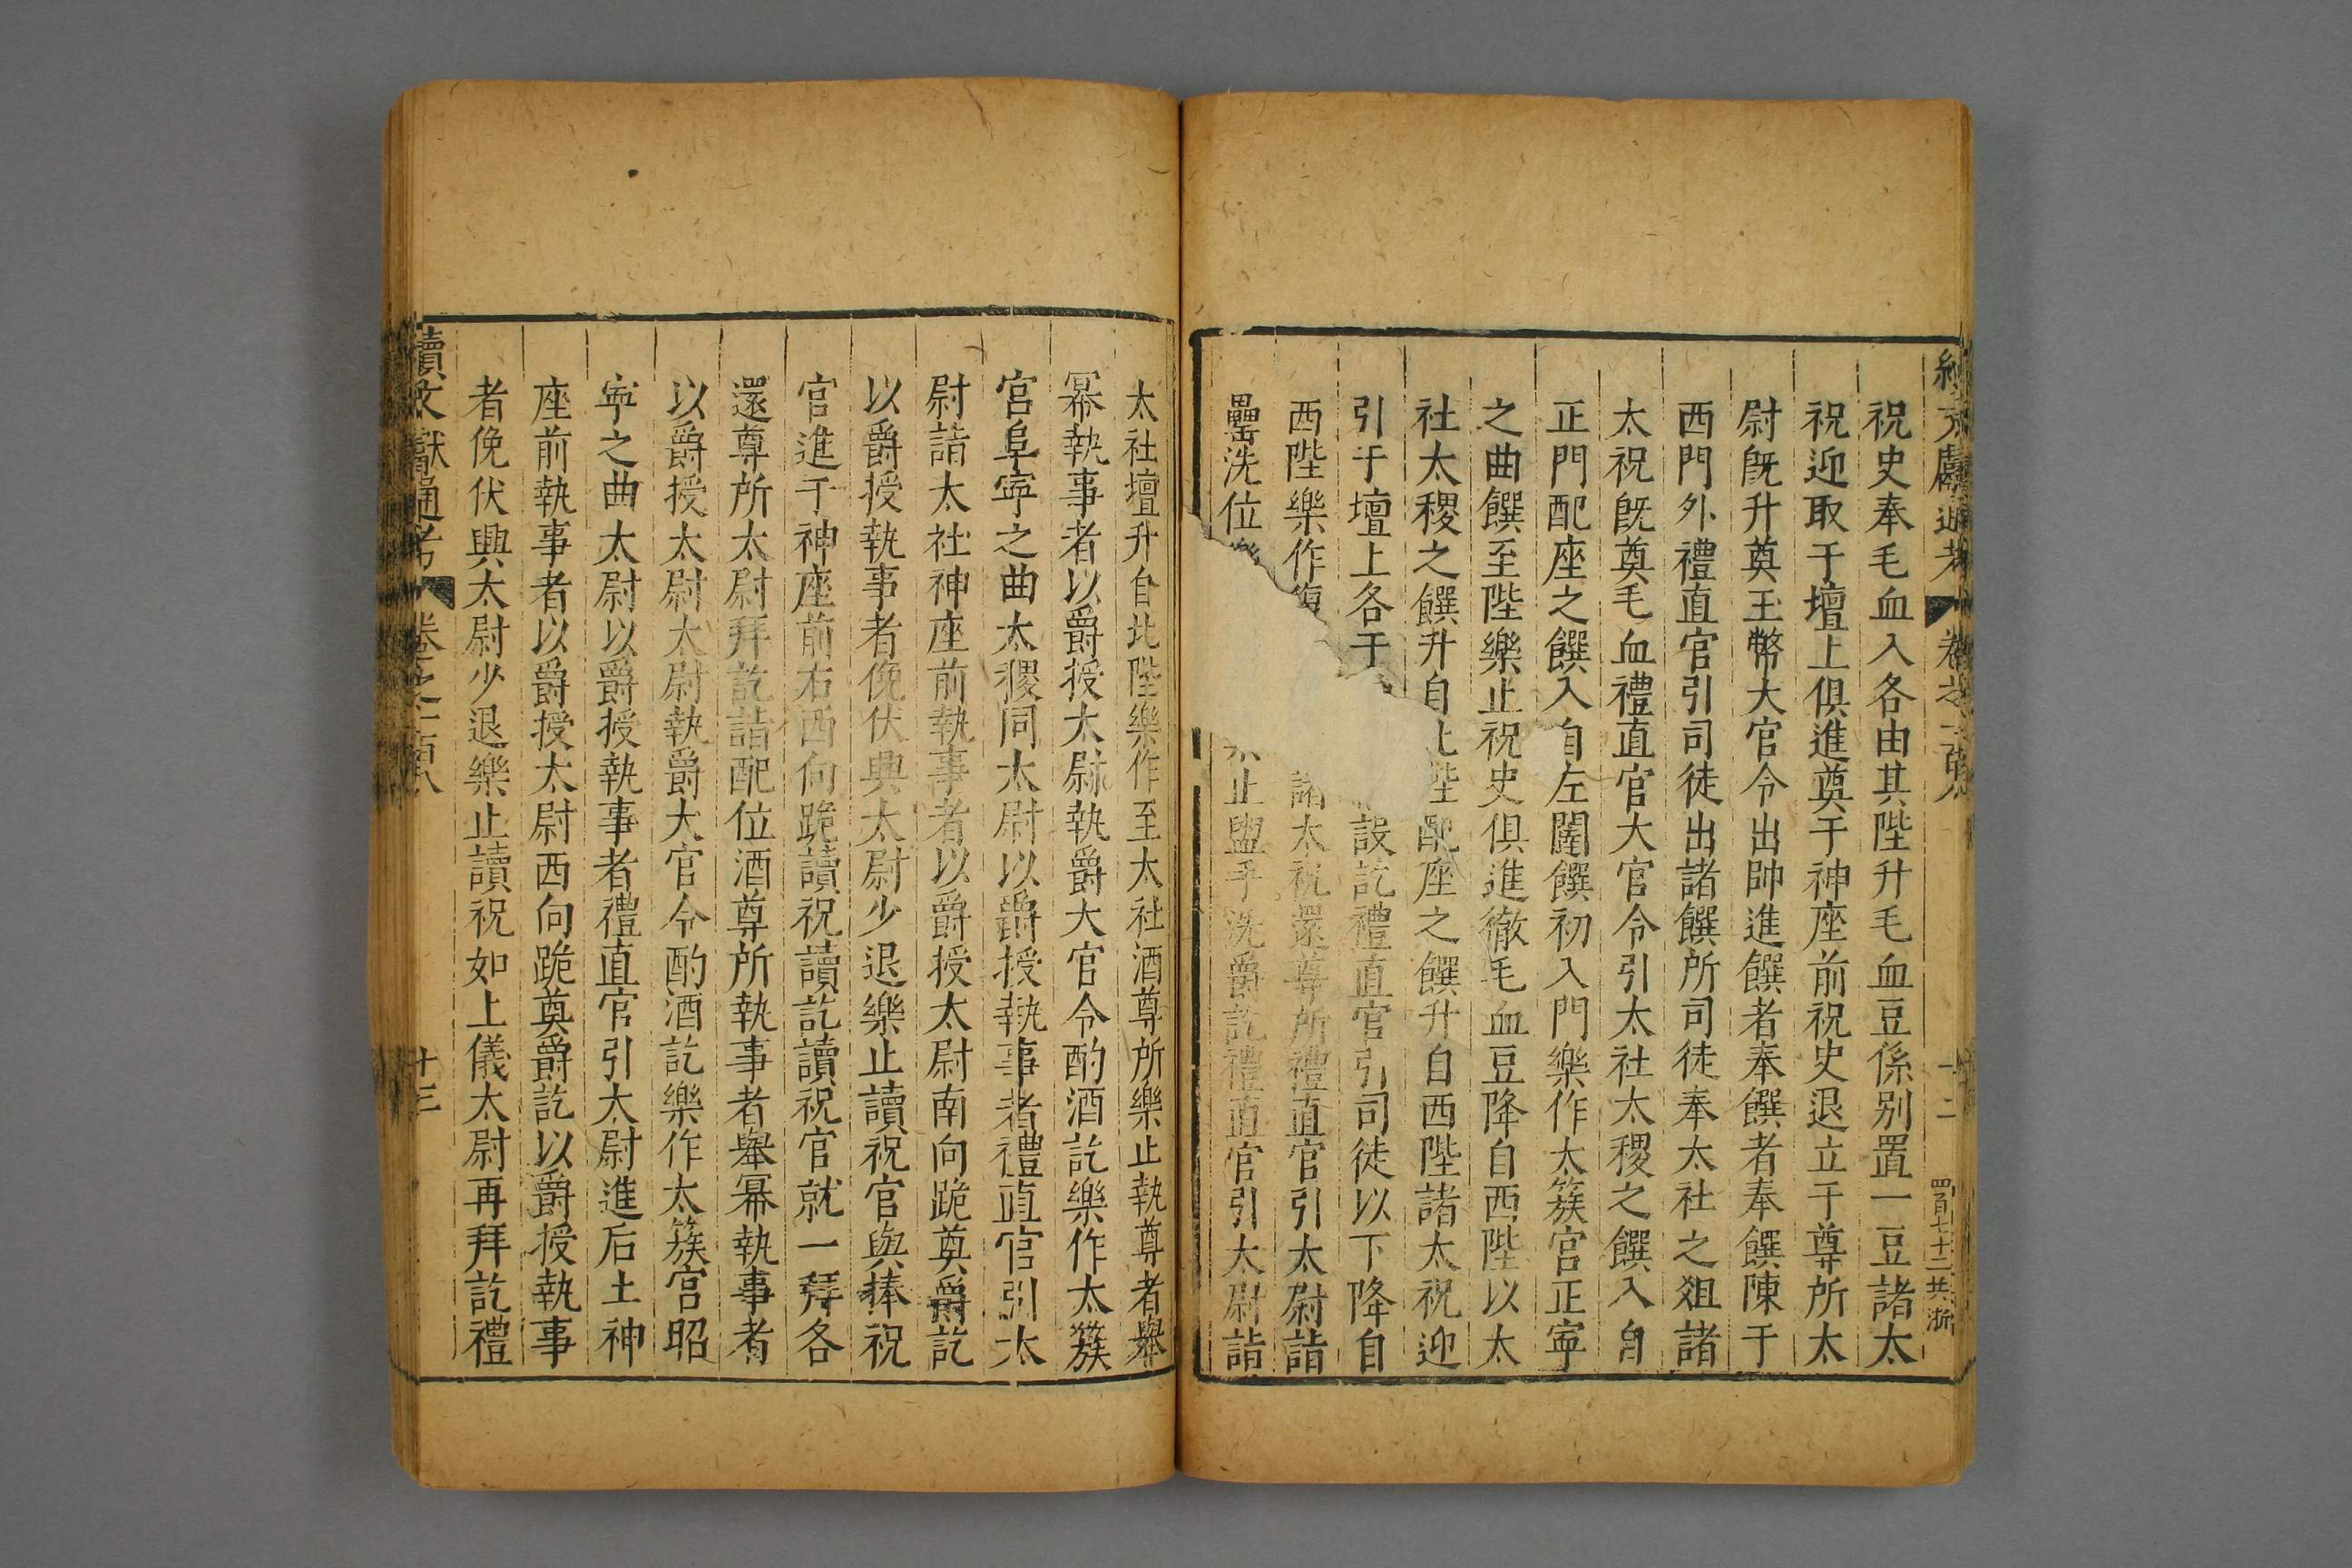 續文獻通考 卷之一百八 十二 四百七十二 共 浙
祝史奉毛血入各由其陛升毛血豆係別置一豆諸太
祝迎取于壇上俱進奠于神座前祝史退立于尊所太
尉旣升奠玉幣大官令出帥進饌者奉饌者奉饌陳于
西門外禮直官引司徒出諸饌所司徒奉太社之俎諸
太祝旣奠毛血禮直官大官令引太社太稷之饌入自
正門配座之饌入自左闥饌初入門樂作太簇宮正寧
之曲饌至陛樂止祝史俱進徹毛血豆降自西陛以太
社太稷之饌升自北陛配座之饌升自西陛諸太祝迎
引于壇上各于 設訖禮直官引司徒以下降自
西陛樂作復 諸太祝還尊所禮直官引太尉詣
罍洗位 止盥手洗爵訖禮直官引太尉詣
太社壇升自北陛樂作至太社酒尊所樂止執尊者舉
冪執事者以爵授太尉執爵大官令酌酒訖樂作太簇
宮阜寧之曲太稷同太尉以爵授執事者禮直官引太
尉詣太社神座前執事者以爵授太尉南向跪奠爵訖
以爵授執事者俛伏興太尉少退樂止讀祝官與捧祝
官進于神座前右西向跪讀祝讀訖讀祝官就一拜各
還尊所太尉拜訖詣配位酒尊所執事者舉冪執事者
以爵授太尉太尉執爵大官令酌酒訖樂作太簇宮昭
寧之曲太尉以爵授執事者禮直官引太尉進后土神
座前執事者以爵授太尉西向跪奠爵訖以爵授執事
者俛伏興太尉少退樂止讀祝如上儀太尉再拜訖禮
續文獻通考 卷之一百八 十三